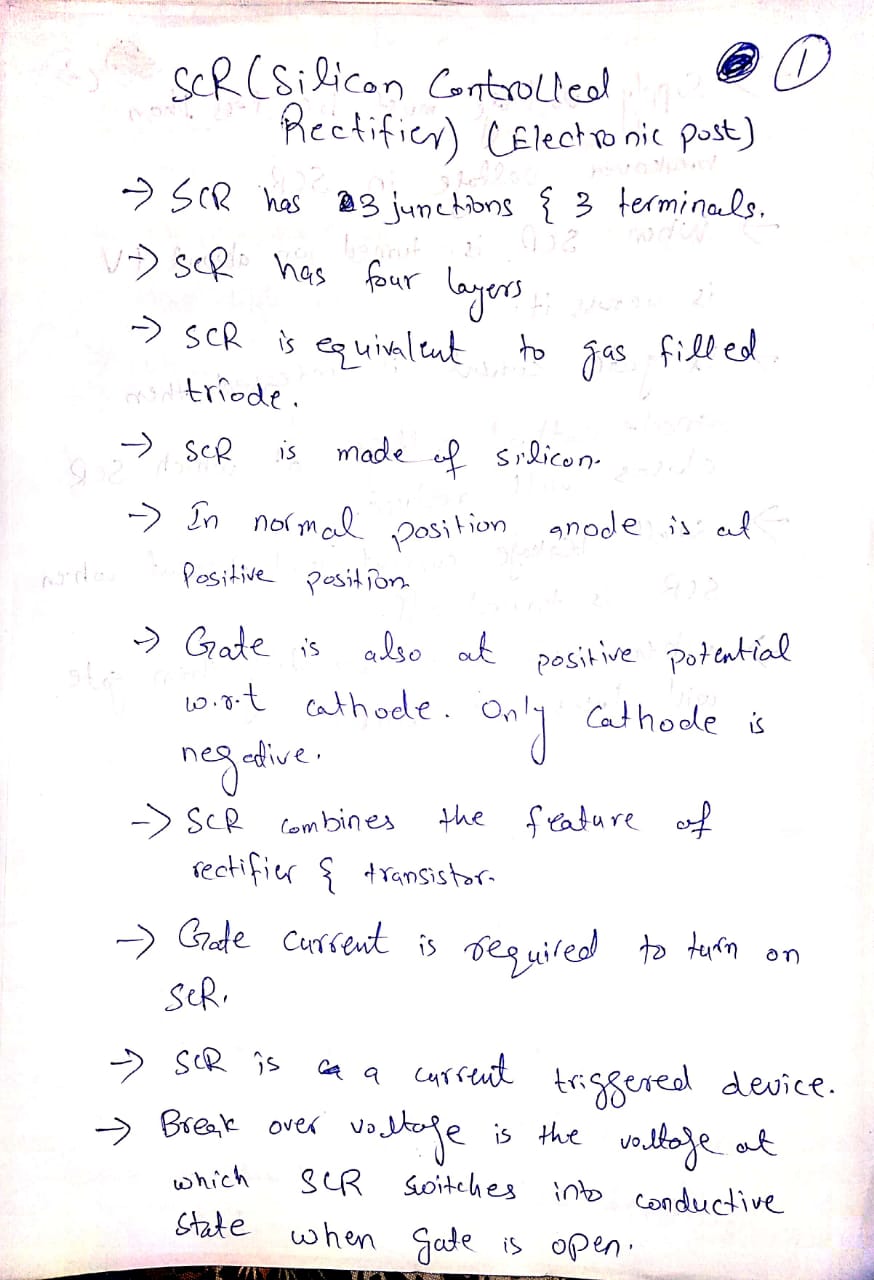 ①
SCR (Silicon Controlled
Rectifier) (Electronic post)
→ SCR has 3 junctions & 3 terminals.
→ SCR has four layers
→ SCR is equivalent to gas filled
triode.
→ SCR is made of silicon.
→ In normal position anode is at
Positive position
→ Gate is also at positive potential
w.r.t cathode. Only Cathode is
negative.
→ SCR combines the feature of
rectifier & transistor.
→ Gate current is required to turn on
SCR.
→ SCR is a current triggered device.
→ Break over voltage is the voltage at
which SCR switches into conductive
State when gate is open.